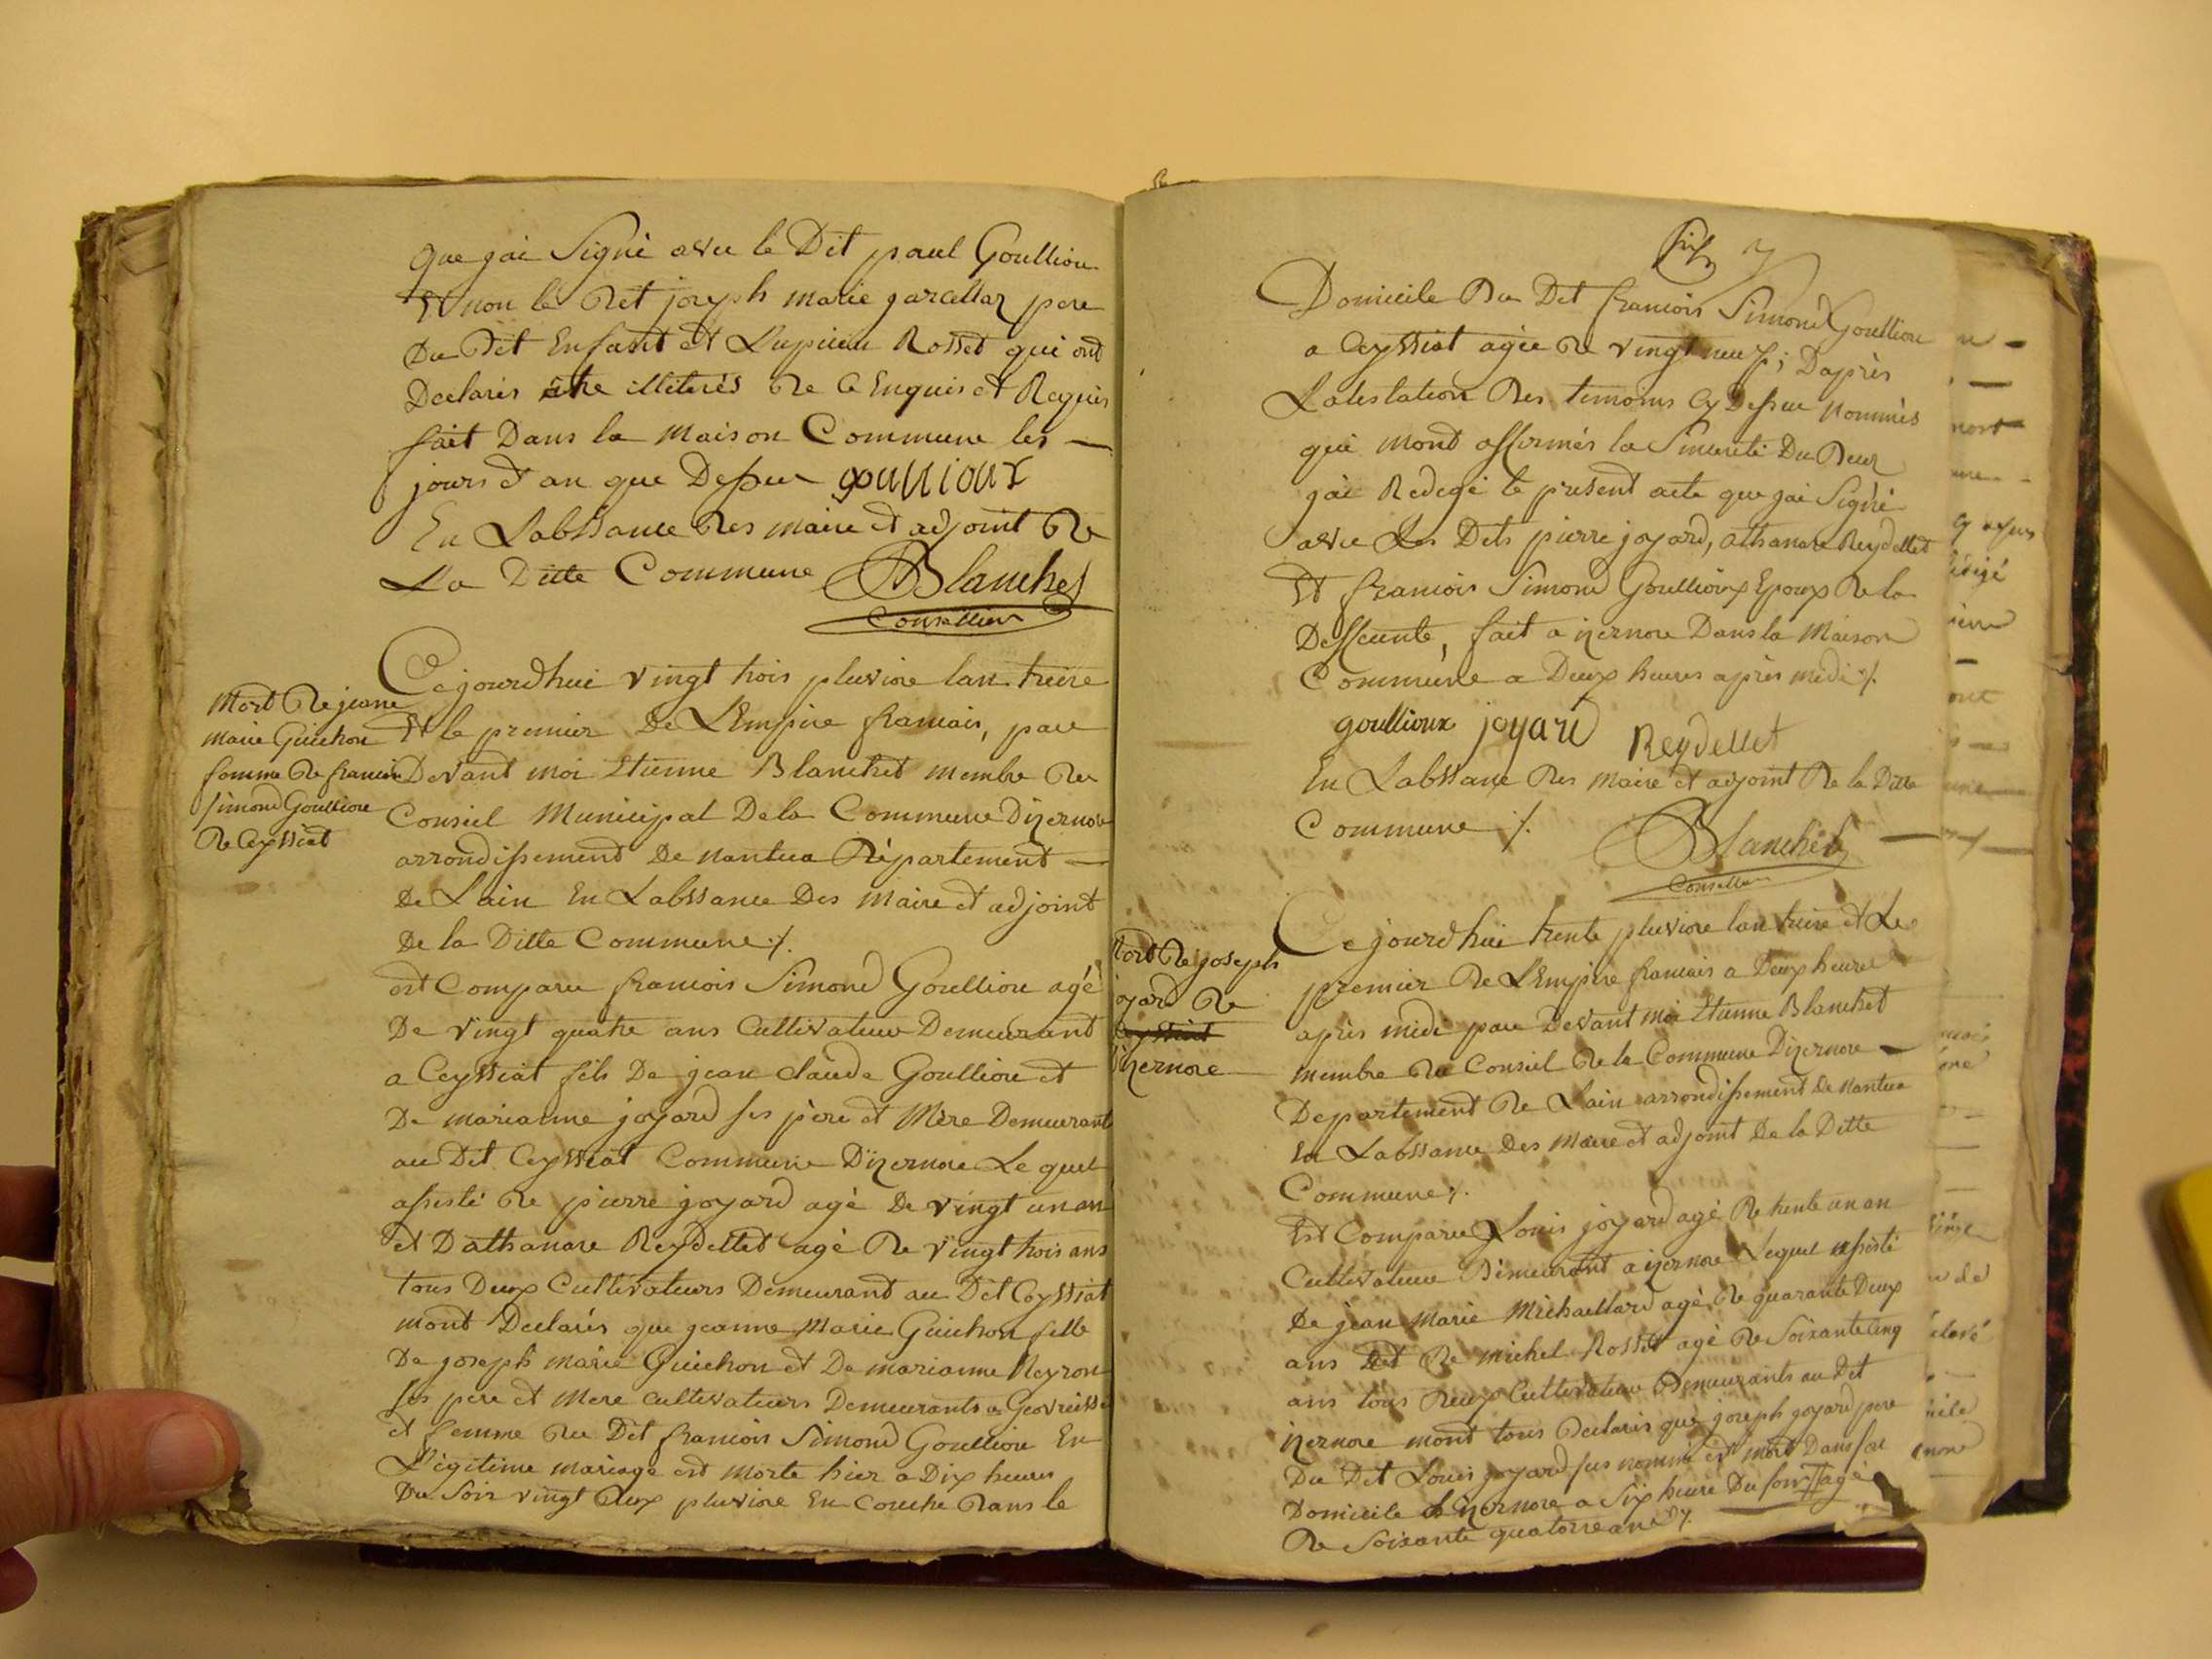 que jai Signé avec le Dit paul Goullioux
Et non le Dit joseph marie jarcellaz pere
Du Dit Enfant et Lupicien Rosset qui ont
Declarés être illiterés De ce Enquis et Requis
fait Dans la Maison Commune les —
jours et an que Dessus goullioux
En Labssance Des maire et adjoint De
La Ditte Commune Blanchet
Conseillier
Mort De jeane
marie Guichon
femme De francois
Simond Goullioux
De Ceyssiat
Cejourdhui vingt trois pluviose lan treize
Et le premier De LEmpire francais, par
Devant moi Etienne Blanchet membre Du
Conseil Municipal De la Commune Dizernore
arrondissement De Nantua Département —
De Lain En Labssance Des Maire et adjoint
De la Ditte Commune ./.
est Comparu francois Simond Goullioux agé
De vingt quatre ans Cultivateur Demeurant
a Ceyssiat fils De jean claude Goullioux et
De marianne joyard ses père et Mère Demeurant
au Dit Ceyssiat Commune Dizernore Le quel
assisté De pierre joyard agé De vingt un an
et Dathanase Reydellet agé De vingt trois ans
tous Deux Cultivateurs Demeurand au Dit Ceyssiat
mont Declarés que jeanne Marie Guichon fille
De joseph marie Guichon et De marianne Neyron
ses pere et Mere Cultivateurs Demeurants a Geovreisset
et femme Du Dit francois Simond Goullioux En
Légitime mariage est Morte hier a Dix heures
Du Soir vingt Deux pluviose En Couche Dans le
Domicile Du Dit francois Simond Goullioux
a Ceyssiat agée De vingt neuf; Daprès
Latestation Des temoins Cy Dessus Nommés
qui mond affirmés la Sincerité Du Deux
jai Redegé le present acte que jai Signé
avec Les Dits pierre joyard, athanase Reydellet
Et francois Simond Goullioux Epoux De la
Deffeunte, fait a izernore Dans la Maison
Commune a Deux heures après midi ./.
goullioux joyard Reydellet
En Labssance Des Maire et adjoint De la Ditte
Commune ./. Blanchet
Conseiller
Mort De joseph
joyard De
Ceyssiat
Dizernore
Cejourdhui trente pluviose lan treize et Le
premier De LEmpire francais a Deux heures
après midi par Devant moi Etienne Blanchet
membre Du Conseil De la Commune Dizernore —
Departement De Lain arrondissement De Nantua
En Labssance Des Maire et adjoint De la Ditte
Commune ./.
Est Comparu Louis joyard agé De trente un an
Cultivateur Demeurant a izernore Lequel assisté
De jean Marie Michaillard agé De quarante Deux
ans et De michel Rosset agé De Soixante Cinq
ans tous Deux Cultivateur Demeurants au Dit
izernore mont tous Declarés que joseph joyard pere
Du Dit Louis joyard sus nommé est mort Dans son
Domicile a izernore a Six heure Du soir agé
De Soixante quatorze ans ./.